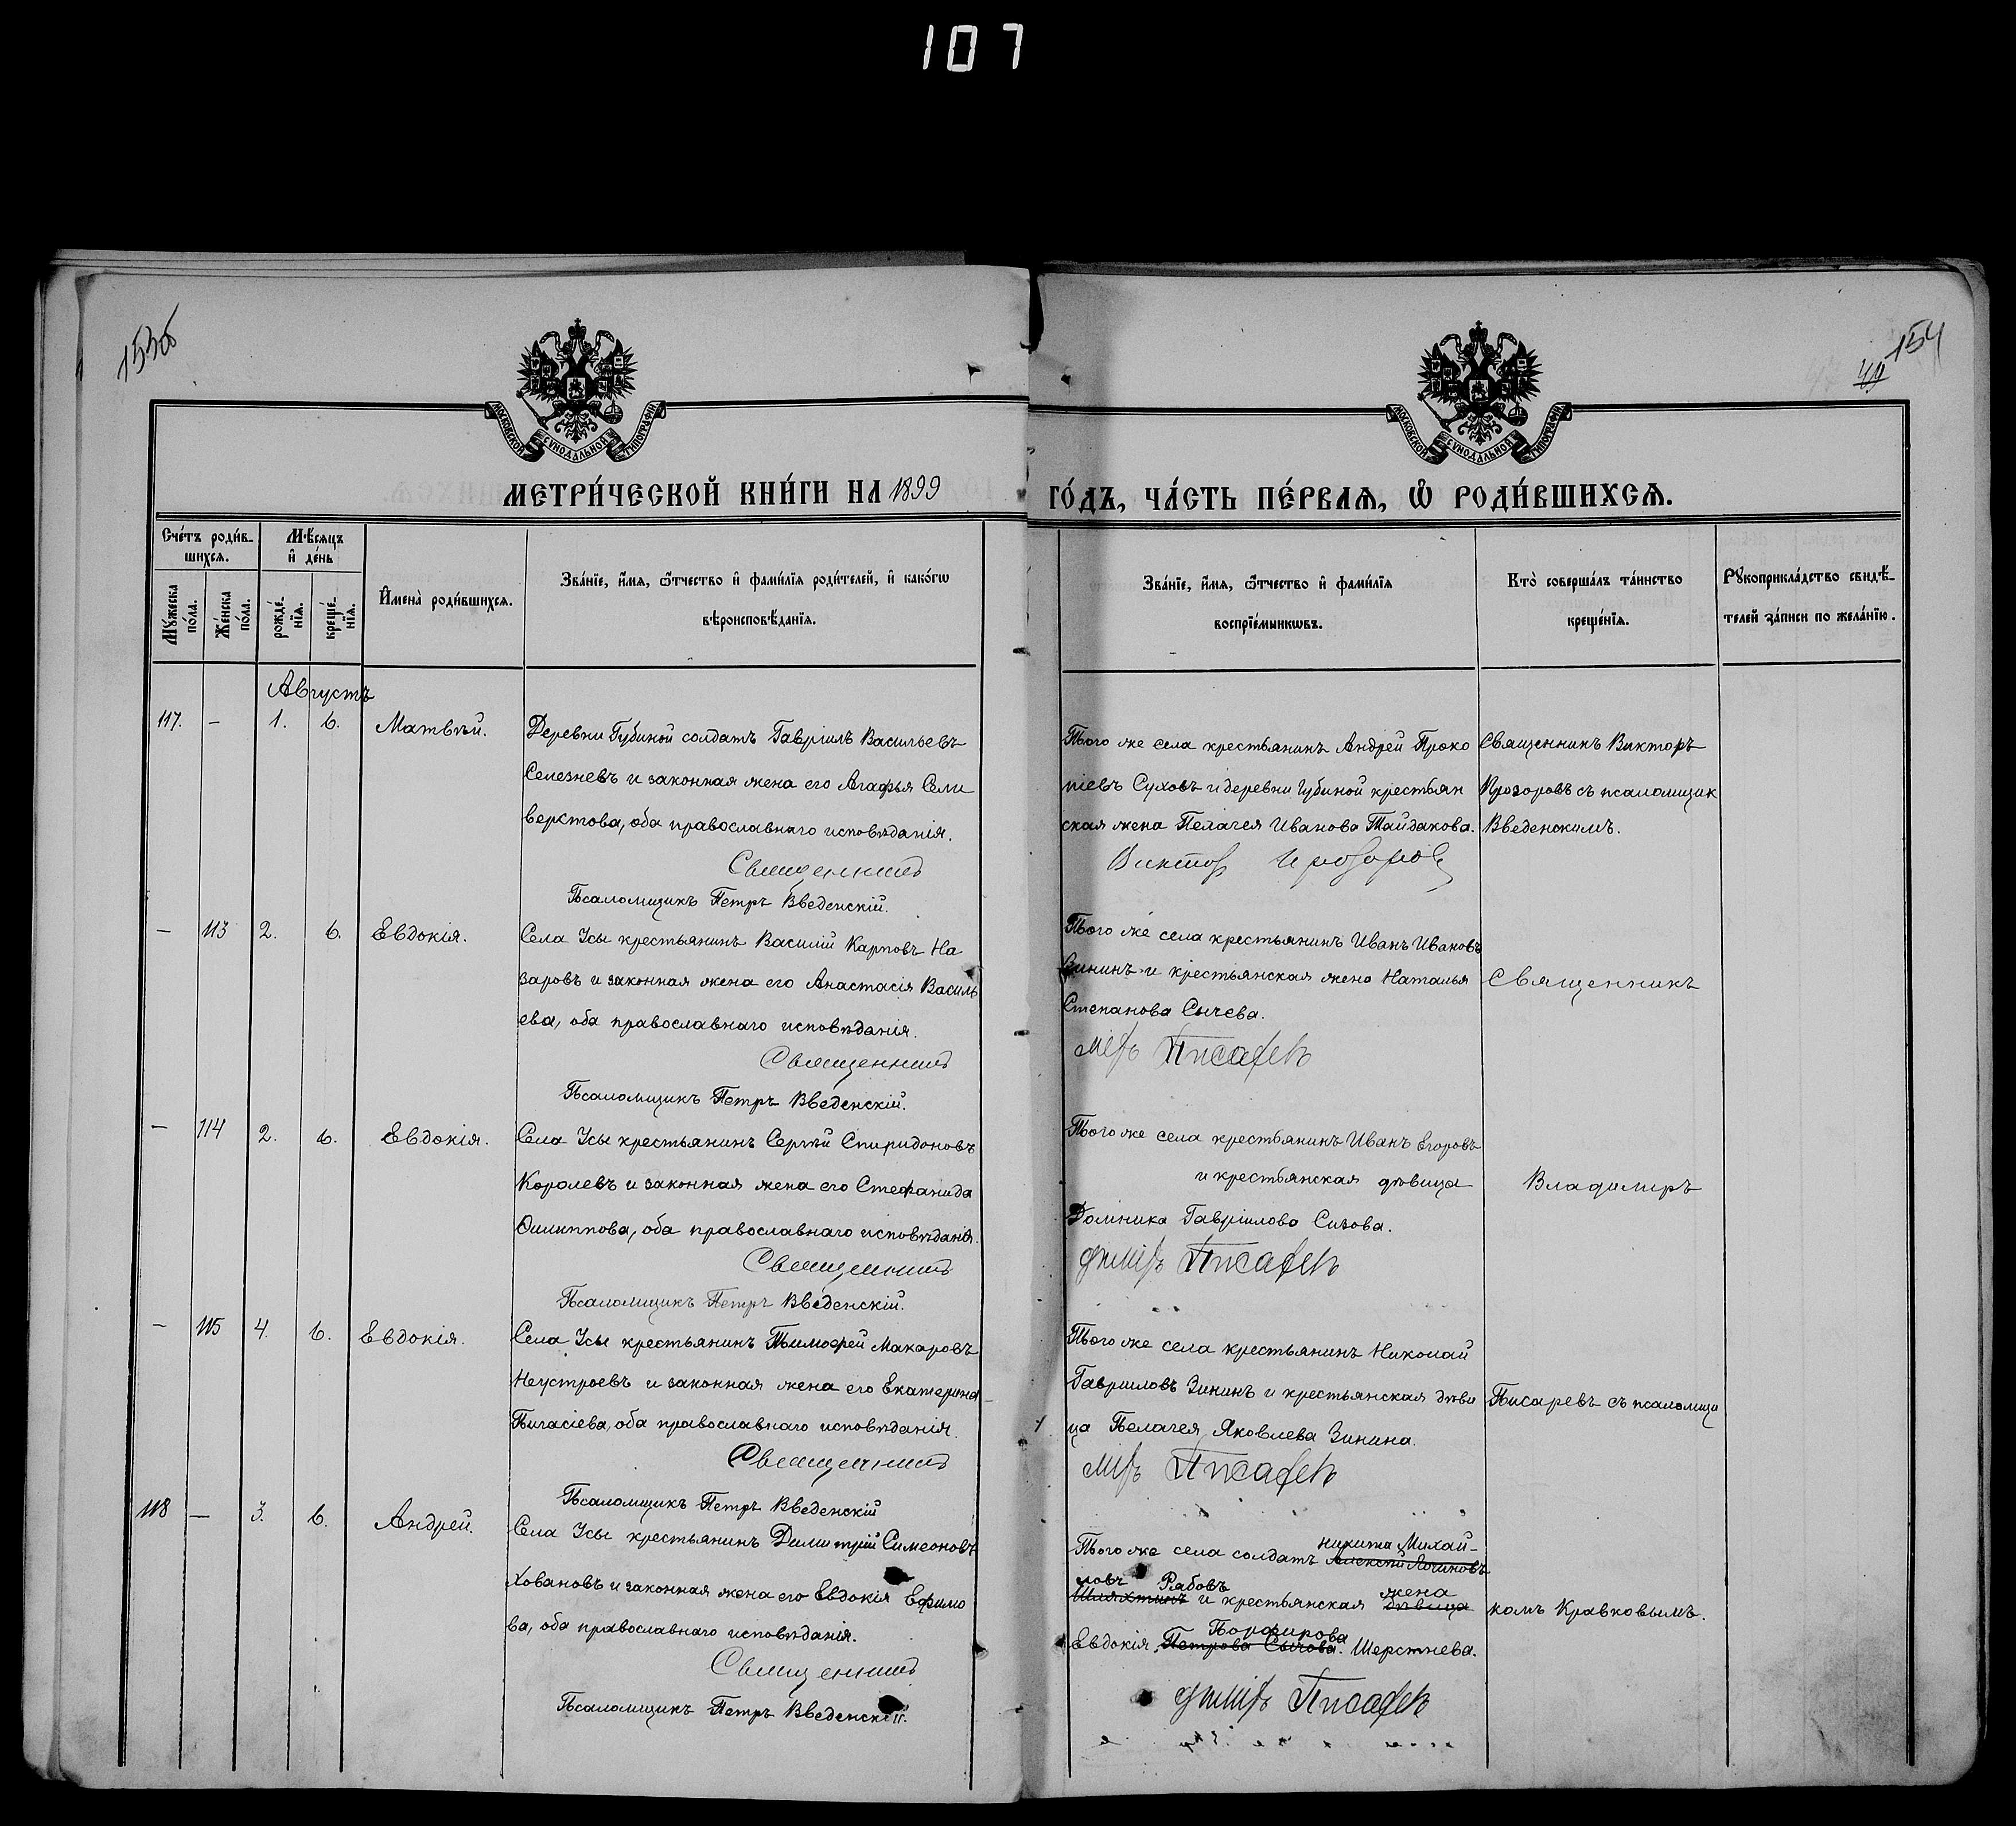 107
153об
154
49
МОСКОВСКОЙ СУНОДАЛЬНОЙ ТИПОГРАФІИ
МОСКОВСКОЙ СУНОДАЛЬНОЙ ТИПОГРАФІИ
МЕТРИ́ЧЕСКОЙ КНИ́ГИ НА 1899
ГО́ДЪ, ЧА́СТЬ ПЕ́РВАЯ, Ѡ҆ РОДИ́ВШИХСѦ.
Сче́тъ роди́в-
шихсѧ.
Мѣ́сѧцъ
и҆ де́нь
Мꙋ́жеска
по́ла.
Же́нска
по́ла.
рожде́-
нїѧ.
креще́-
нїѧ.
И҆мена̀ роди́вшихсѧ.
Зва́нїе, и҆́мѧ, ѻ҆́тчество и҆ фами́лїѧ роди́телей, и҆ како́гѡ
вѣроисповѣ́данїѧ.
Зва́нїе, и҆́мѧ, ѻ҆́тчество и҆ фами́лїѧ
воспрїе́мникѡвъ.
Кто̀ соверша́лъ та́инство
креще́нїѧ.
Рꙋкоприкла́дство свидѣ́-
телей за́писи по жела́нїю.
Августъ
117. – 1. 6. Матвѣй.
Деревни Губиной солдатъ Гавріилъ Васильевъ
Селезневъ и законная жена его Агафья Сели
верстова, оба православнаго исповѣданія.
Священникъ
Псаломщикъ Петръ Введенскій.
Того же села крестьянинъ Андрей Проко
піевъ Суховъ и деревни Губиной крестьян
ская жена Пелагея Иванова Тайдакова.
Виктор Прозоров
Священникъ Викторъ
Прозоровъ съ псаломщик
Введенскимъ.
– 113 2. 6. Евдокія.
Села Усы крестьянинъ Василій Карповъ На
заровъ и законная жена его Анастасія Василь
ева, оба православнаго исповѣданія.
Священникъ
Псаломщикъ Петръ Введенскій.
Того же села крестьянинъ Иванъ Ивановъ
Зининъ и крестьянская жена Наталья
Степанова Сычева.
Писаревъ
Священникъ
– 114 2. 6. Евдокія.
Села Усы крестьянинъ Сергѣй Спиридоновъ
Королевъ и законная жена его Стефанида
Филиппова, оба православнаго исповѣданія.
Священникъ
Псаломщикъ Петръ Введенскій.
Того же села крестьянинъ Иванъ Егоровъ
и крестьянская дѣвица
Домника Гавріилова Сизова.
Писаревъ
Владимиръ
– 115 4. 6. Евдокія.
Села Усы крестьянинъ Тимофей Макаровъ
Неустроевъ и законная жена его Екатерина
оба православнаго исповѣданія.
Священникъ
Псаломщикъ Петръ Введенскій
Того же села крестьянинъ Николай
Гавриловъ Зининъ и крестьянская дѣви
ца Пелагея Яковлева Зинина.
Писаревъ
Писаревъ съ псаломщи
118 – 3. 6. Андрей.
Села Усы крестьянинъ Димитрій Симеоновъ
Ховановъ и законная жена его Евдокія Ефимо
ва, оба православнаго исповѣданія.
Священникъ
Псаломщикъ Петръ Введенскій.
Никита Михай-
Того же села солдатъ Алексѣй Логиновъ
ловъ Рябовъ жена
Шляхтинъ и крестьянская дѣвица
Порфирова
Евдокія Петрова Сычова. Шерстнева.
Писаревъ
комъ Кравковымъ.